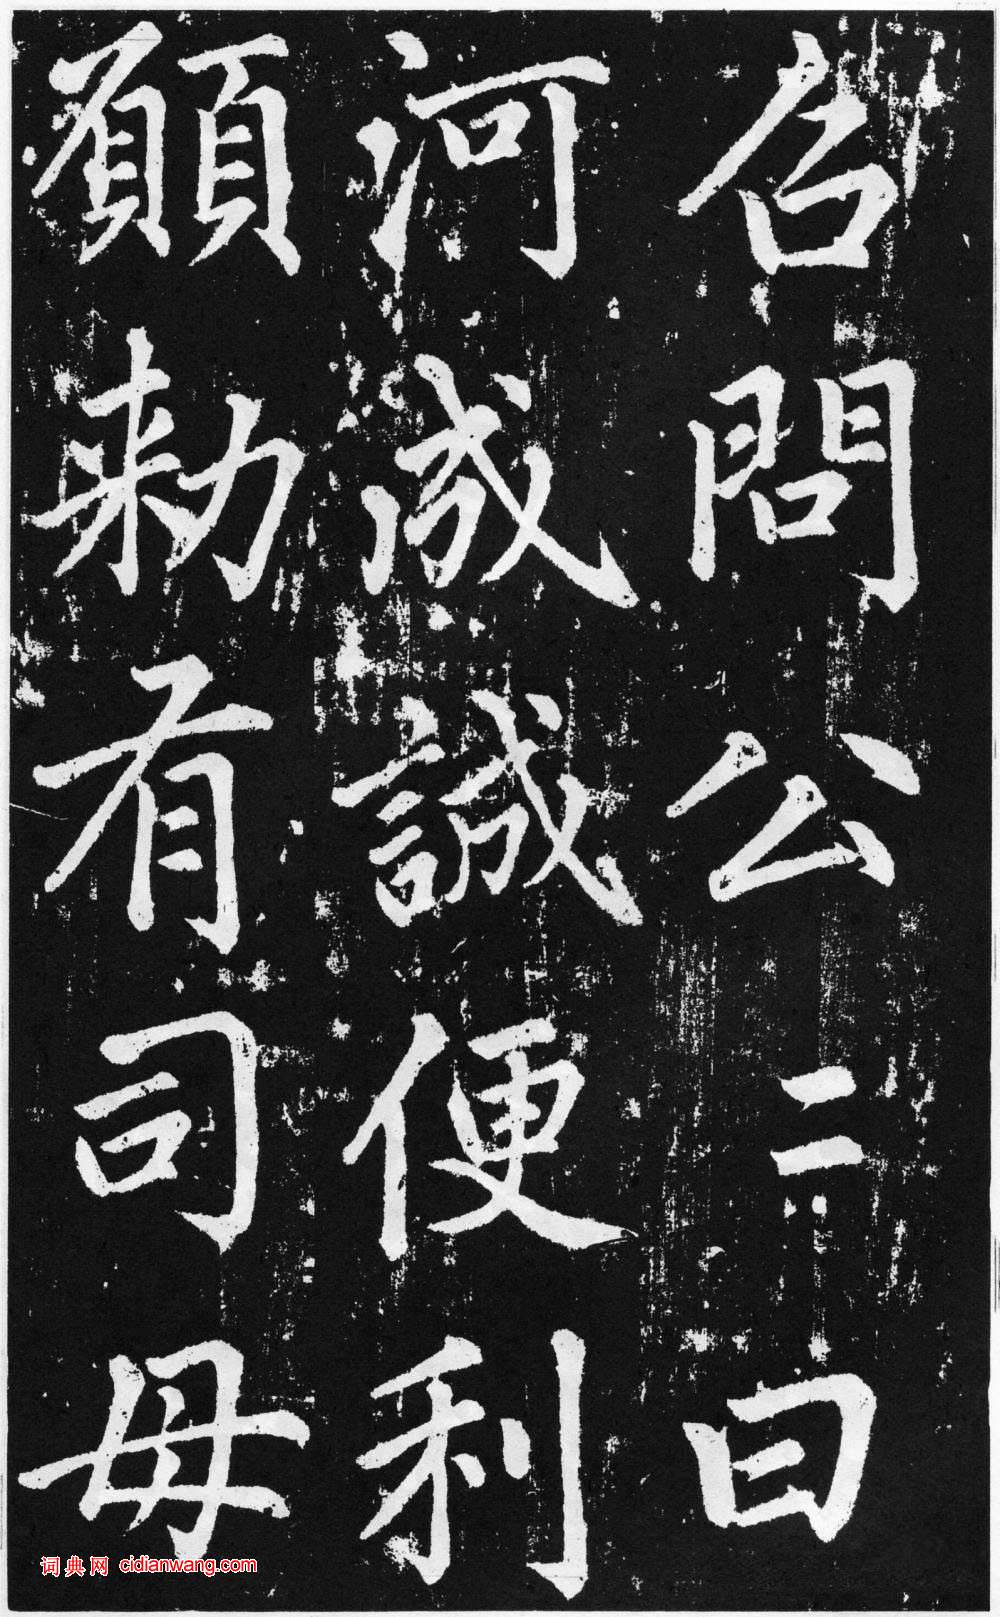 召問公〻曰
河成誠便利
願勑有司毋
词典网 cidianwang.com